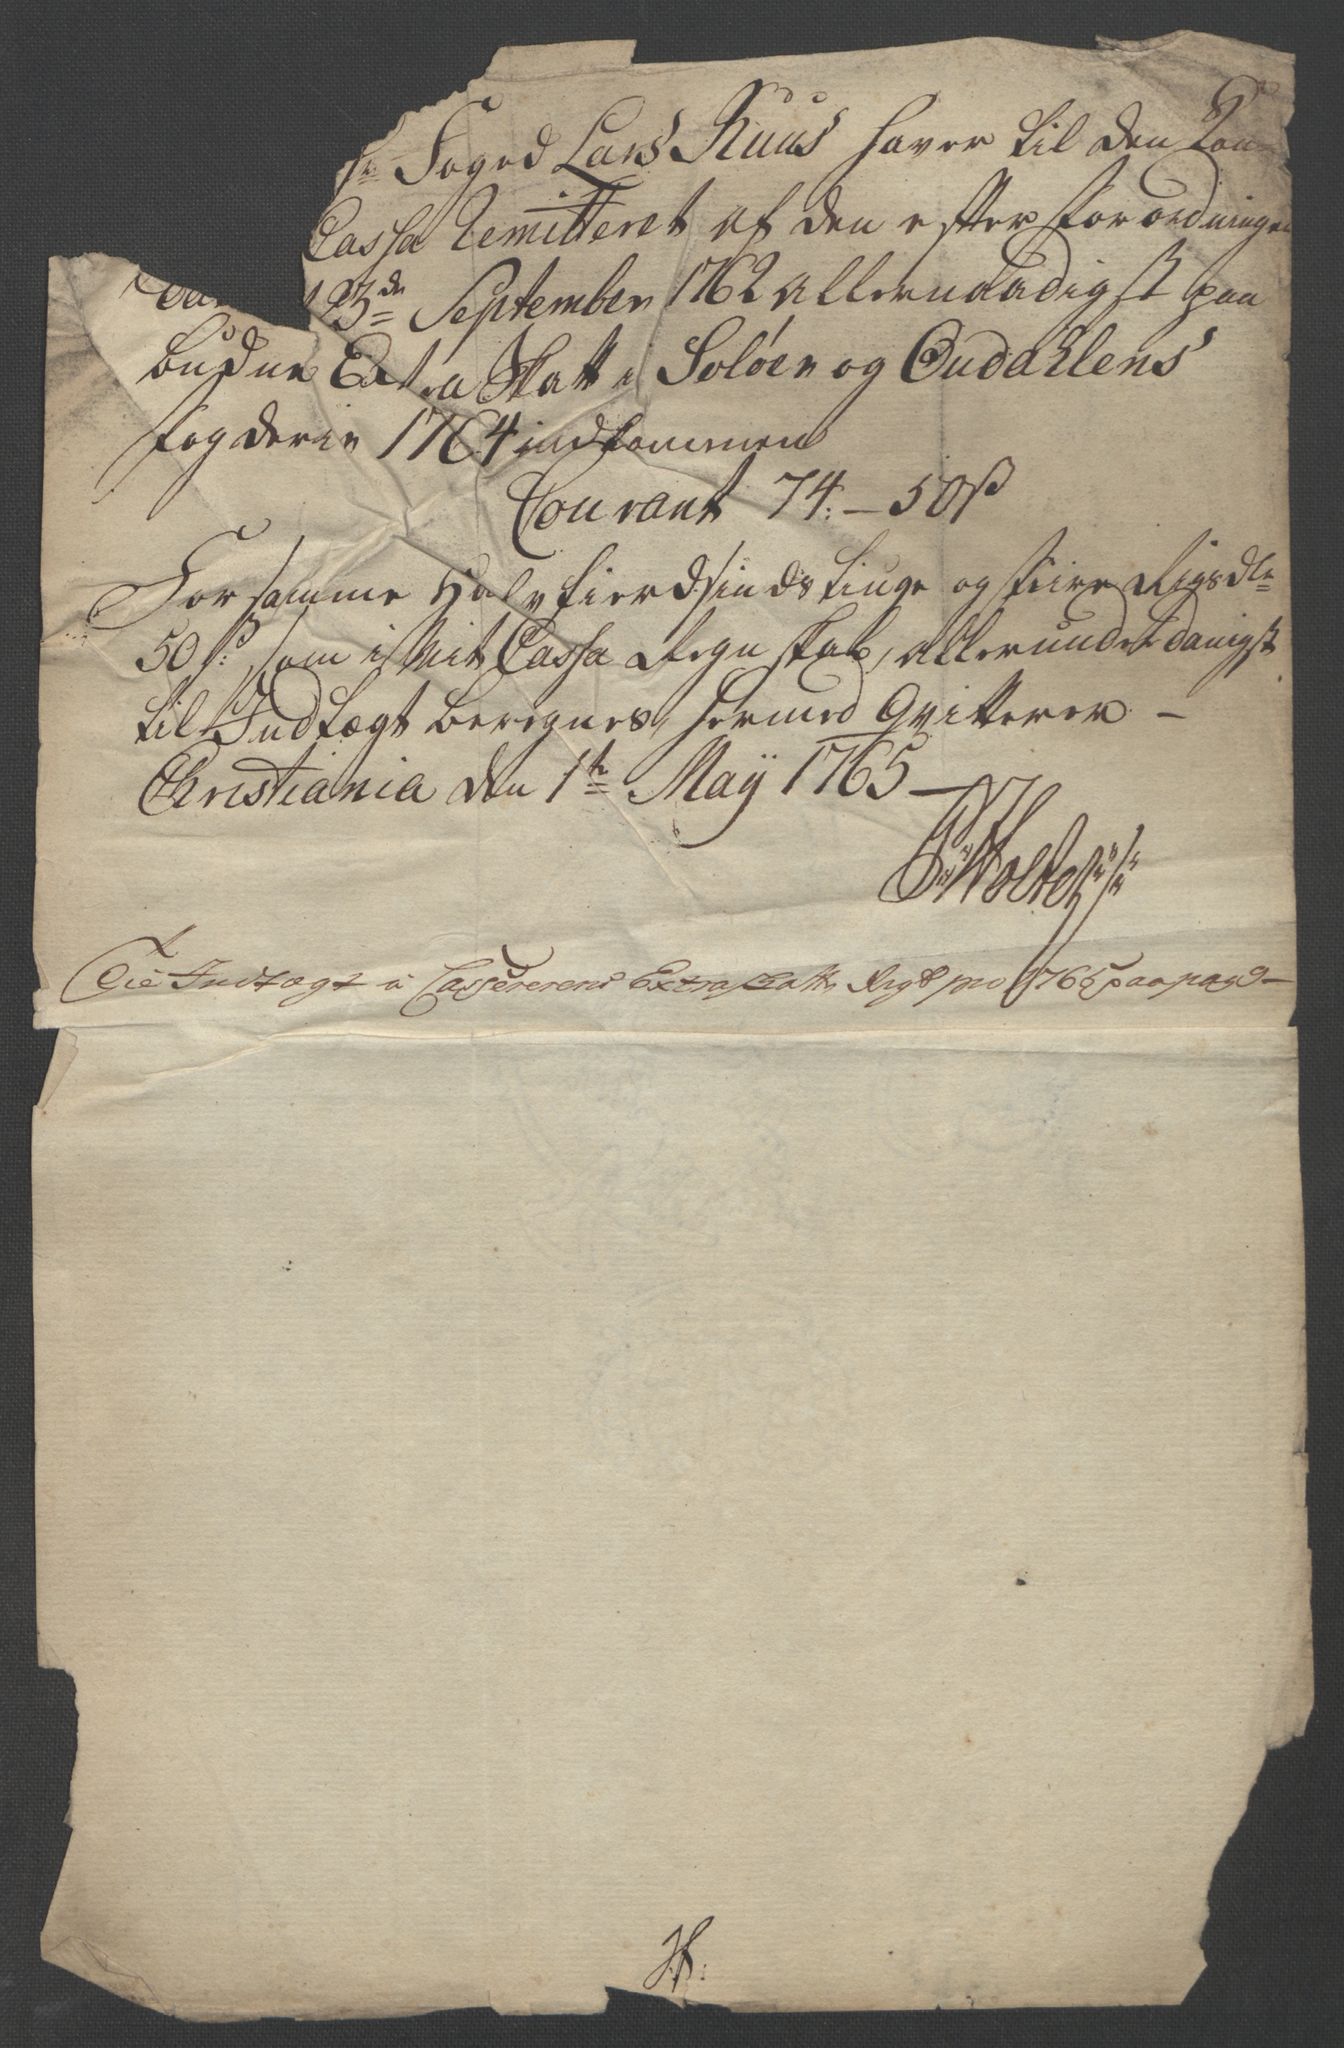 Hr: Foged Lars Ruus haver til den Kon-
Cassa Remitteret af den efter Forordningen
23de September 1762 allernaadigst paa
budne Extra Skatt i Soløer og Oudahlens
fogderie 1764 indkommen
Courant 74: – 50 ß
For samme Halvfierdsindstiuge og fiire Rigsdlr
50 ß: som i Mit Cassa Regnskab, allerunderdanigst
til Indtægt beregnes, hermed Qvitterer –
Christiania den 1te Maÿ 1765 –
Holte
Til Indtægt i Cassererens Extra Skatte Regsb pro 1765 paa pag 9 –